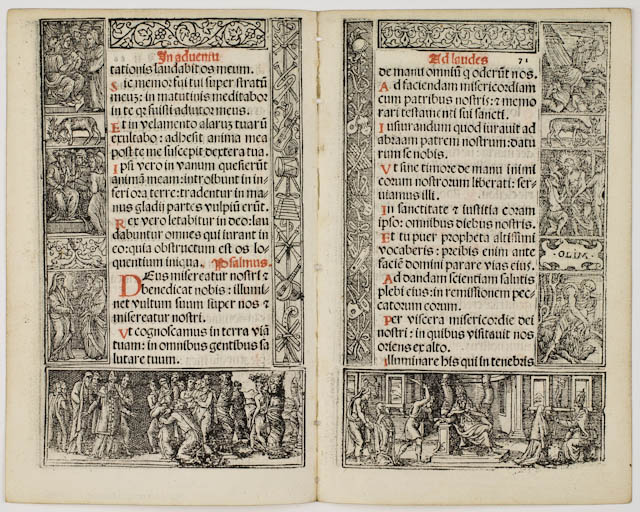 In adventu
tationis laudabit os meum.
Sic memor fui tui super stratũ
meuz: in matutinis meditabor
in te qr fuisti adiutor meus.
Et in velamento alaruz tuarũ
exultabo: adhesit anima mea
post te me suscepit dextera tua.
Ipsi vero in vanum quesierũt
animã meam: introibunt in in
feriora terre: tradentur in ma-
nus gladij partes vulpiũ erũt.
Rex vero letabitur in deo: lau
dabuntur omnes qui iurant in
eo: quia obstructum est os lo-
quentium iniqua. Psalmus.
Deus misereatur nostri ⁊
benedicat nobis: illumi
net vultum suum super nos ⁊
misereatur nostri.
Ut cognoscamus in terra viã
tuam: in omnibus gentibus sa
lutare tuum.
Ad laudes 71
de manu omniũ q oderũt nos.
Ad faciendam misericordiam
cum patribus nostris: ⁊ memo
rari testamenti sui sancti.
Iusiurandum quod iurauit ad
abraam patrem nostrum: datu
rum se nobis.
Ut sine timore de manu inimi
corum nostrorum liberati: ser-
uiamus illi.
In sanctitate ⁊ iustitia coram
ipso: omnibus diebus nostris.
Et tu puer propheta altissimi
vocaberis: preibis enim ante
faciẽ domini parare vias eius.
Ad dandam scientiam salutis
plebi eius: in remissionem pec-
catorum eorum.
Per viscera misericordie dei
nostri: in quibus visitauit nos
oriens ex alto.
Illuminare his qui in tenebris
·OLIM·